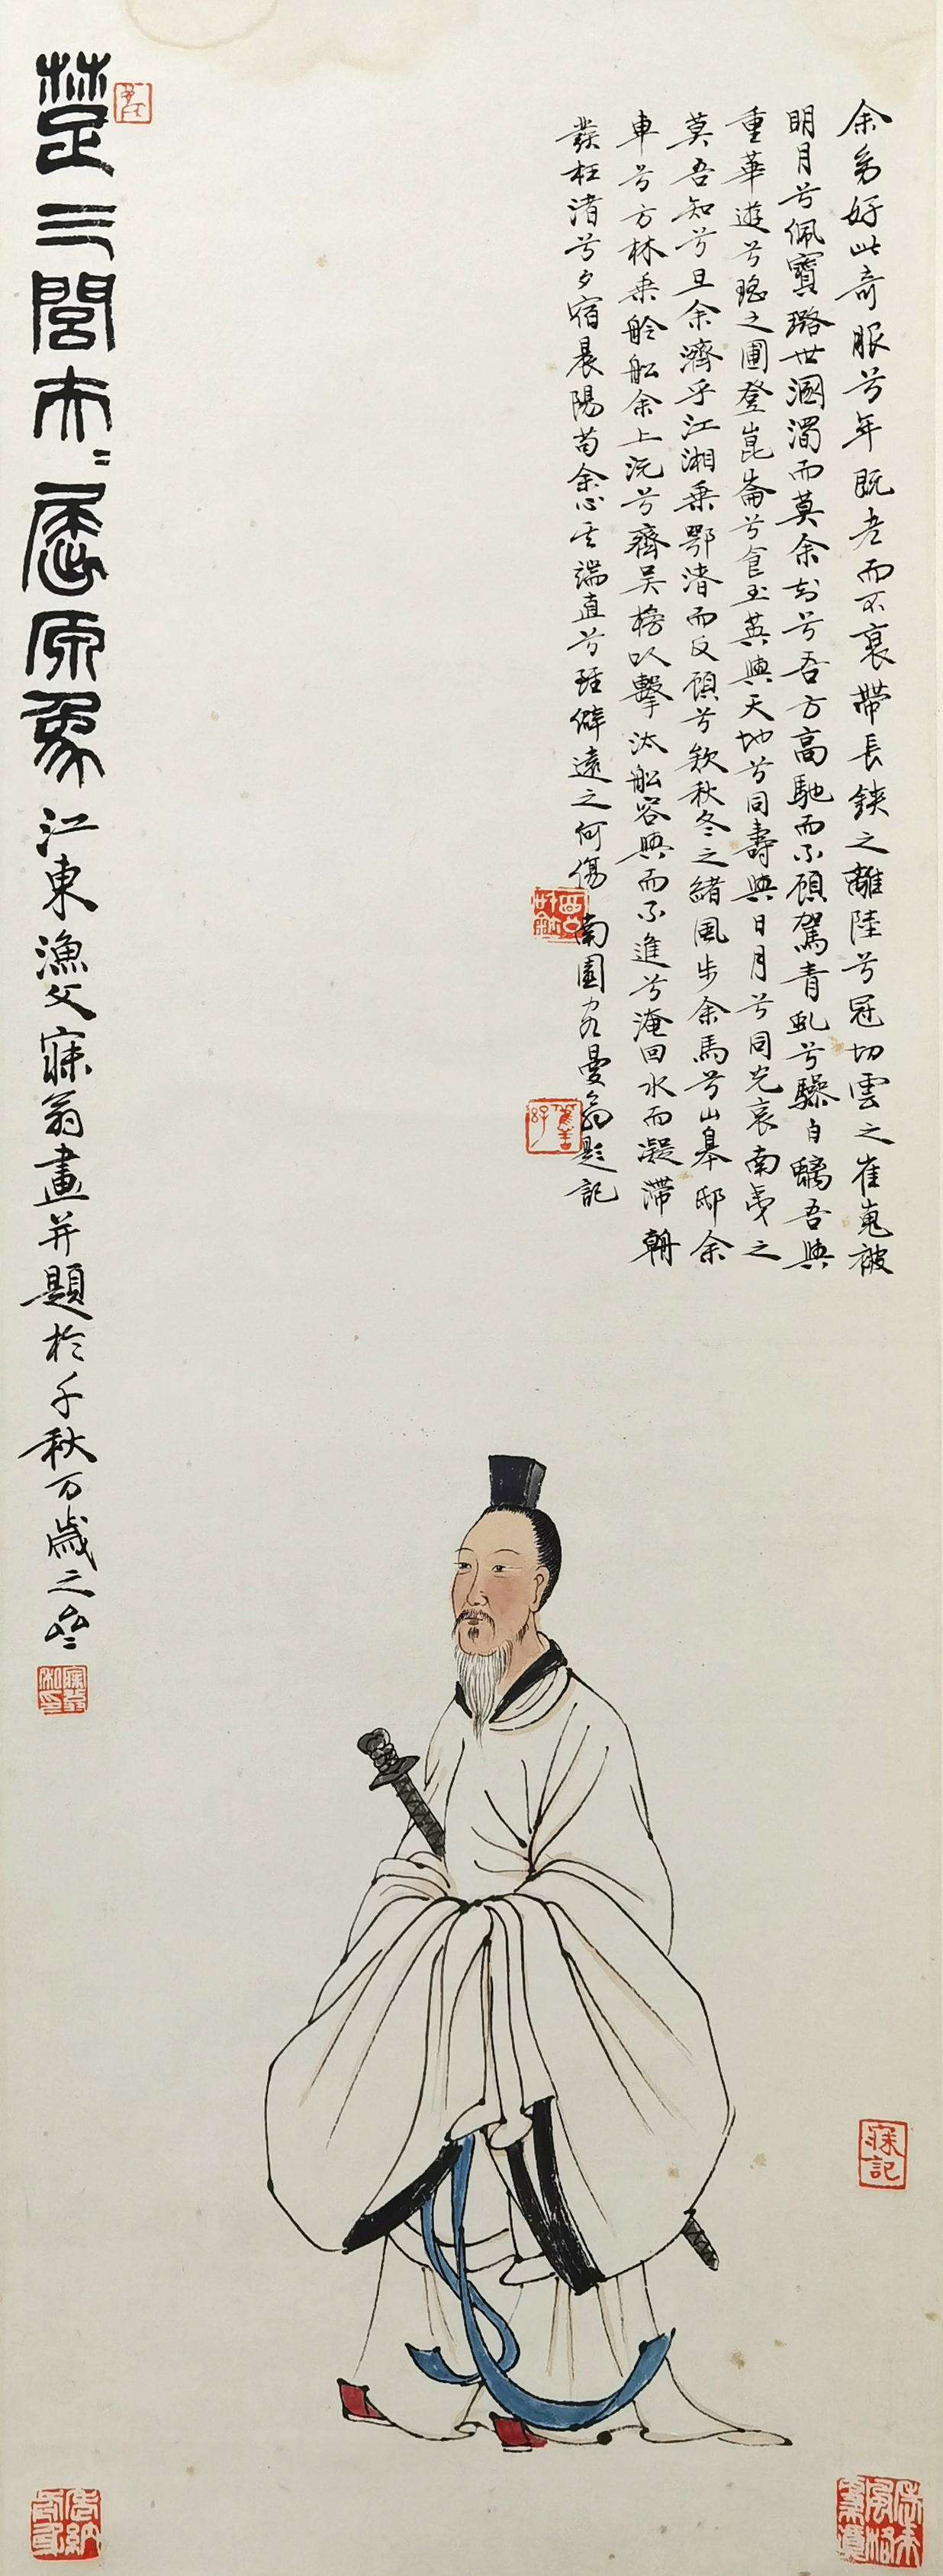 余幼好此奇服兮年既老而不衰帶長鋏之離陸兮冠切雲之崔嵬被
明月兮佩寶璐世溷濁而莫余知兮吾方高馳而不顧駕青虬兮驂白螭吾與
重華遊兮瑤之圃登崑崙兮食玉英與天地兮同壽與日月兮同光哀南夷之
莫吾知兮旦余濟乎江湘乘鄂渚而反顧兮欸秋冬之緒風步余馬兮山皋邸余
車兮方林乘舲船余上沅兮齊吳榜以擊汰船容與而不進兮淹回水而凝滯朝
發枉渚兮夕宿晨陽苟余心其端直兮雖僻遠之何傷 南園客曼翁題記
楚三閭夫〻屈原象 江東漁父寐翁畫并題於千秋万歲之
寐記